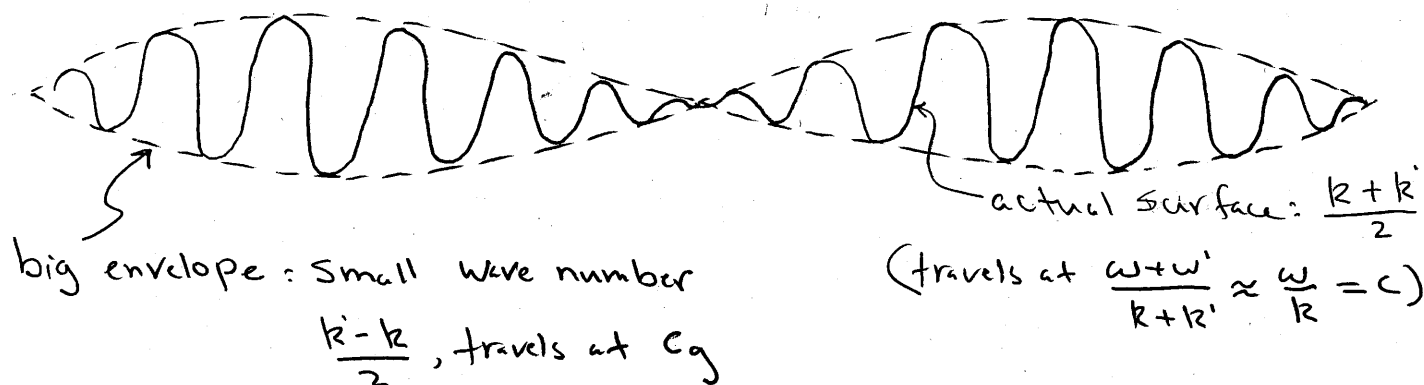 big envelope: small wave number
k'-k/2, travels at cg
actual surface: k+k'/2
(travels at ω+ω'/k+k' ≈ ω/k = c)